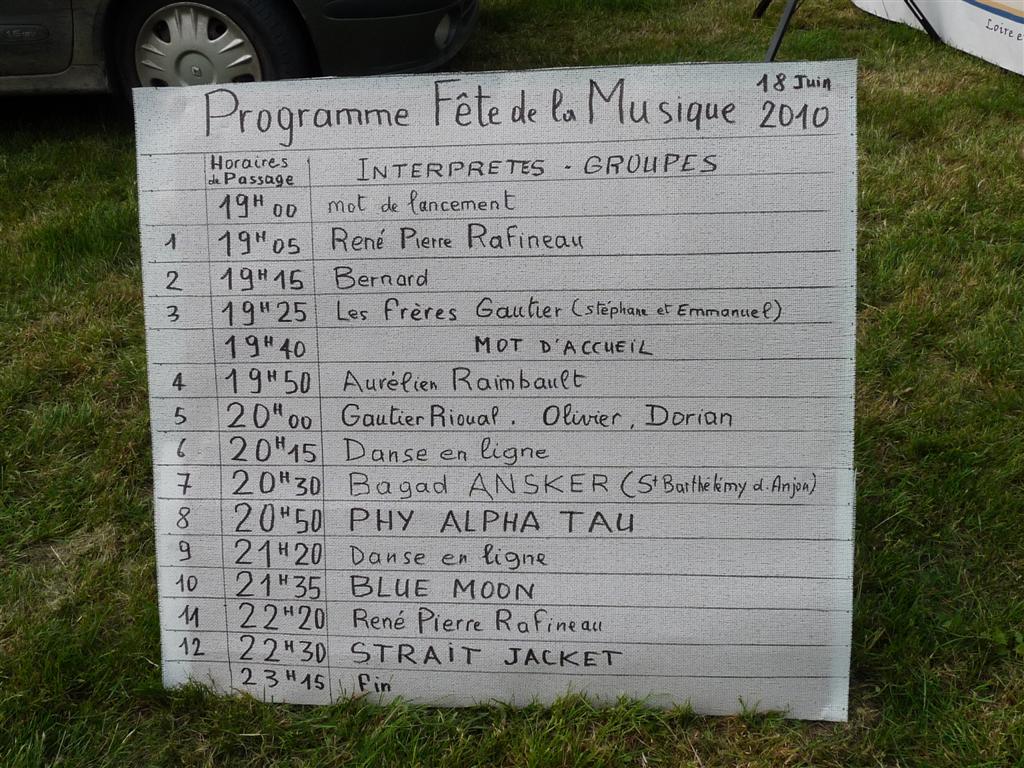 Programme Fête de la Musique 18 Juin 2010
Horaires de Passage INTERPRETES - GROUPES
19H00 mot de lancement
1 19H05 René Pierre Rafineau
2 19H15 Bernard
3 19H25 Les Frères Gautier (Stéphane et Emmanuel)
19H40 MOT D'ACCUEIL
4 19H50 Aurélien Raimbault
5 20H00 Gautier Rioual. Olivier, Dorian
6 20H15 Danse en ligne
7 20H30 Bagad ANSKER (St Barthélémy d.Anjou)
8 20H50 PHY ALPHA TAU
9 21H20 Danse en ligne
10 21H35 BLUE MOON
11 22H20 René Pierre Rafineau
12 22H30 STRAIT JACKET
23H15 fin
Loire e